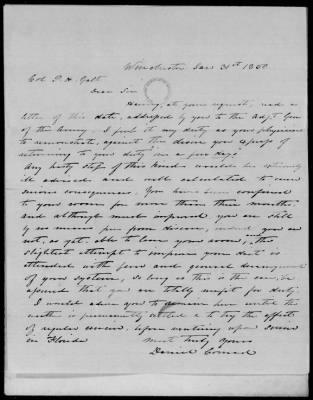 Winchester Jan 31st 1850
Col P. H. Galt
Dear Sir
Having, at your request, read a
letter of this date, addressed by you to the Adjt Genl
of the Army, I feel it my duty as your physician
to remonstrate, against the desire you express of
returning to your duty in a few days.
Any hasty step of this kind would be extremely
ill advised and well calculated to ensue
serious consequences. You have been confined
to your room for more than three months,
and although much improved you are still
by no means free from disease, indeed you are
not, as yet, able to leave your room, the
slightest attempt to your diet is
attended with fever and general derangement
of your system, so long as this is the case, be
assured that you are totally unfit for duty.
I would advise you to remain here until the
weather is permanently settled & to try the effect
of regular exercise, before venturing upon
in Florida
Most truly yours
Daniel Conrad